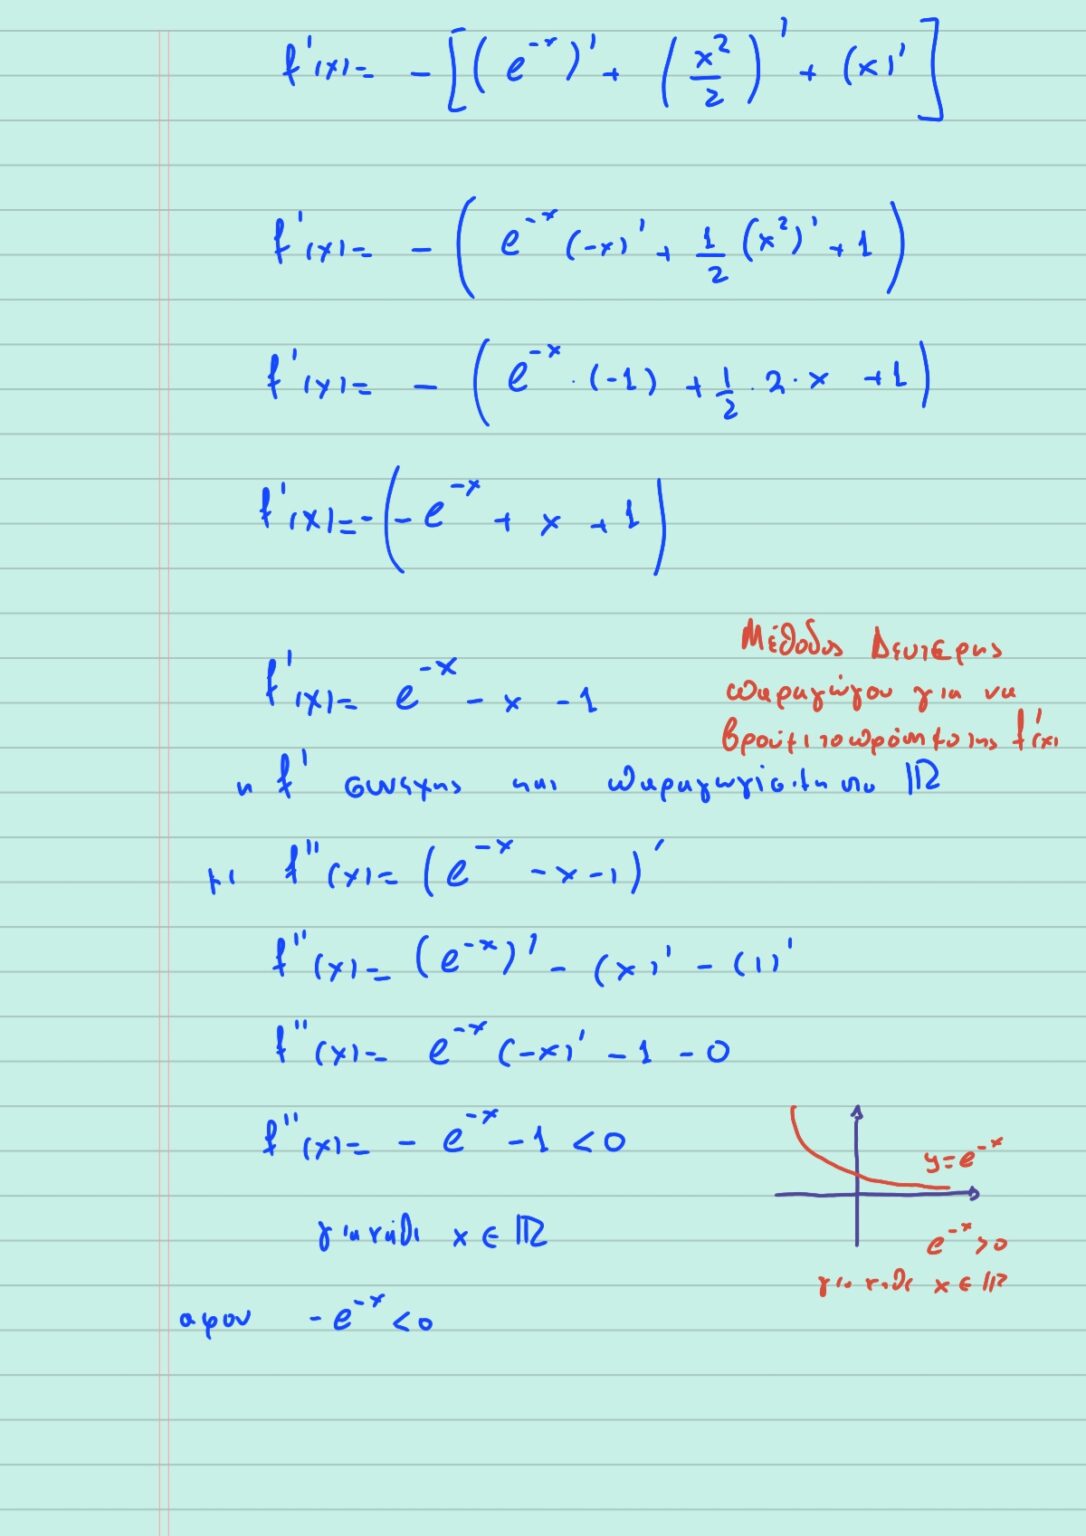 f'(x)= - [(e^{-x})' + (x²/2)' + (x)']
f'(x)= - (e^{-x} (-x)' + 1/2 (x²)' + 1)
f'(x)= - (e^{-x} · (-1) + 1/2 · 2 · x + 1)
f'(x)= - (-e^{-x} + x + 1)
f'(x)= e^{-x} - x - 1
Μέθοδος Δευτερης
παραγώγου για να
βρούμε το πρόσημο της f'(x)
η f' συνεχης και παραγωγίσιμη στο ℝ
με f''(x)= (e^{-x} - x - 1)'
f''(x)= (e^{-x})' - (x)' - (1)'
f''(x)= e^{-x} (-x)' - 1 - 0
f''(x)= - e^{-x} - 1 < 0
για κάθε x ∈ ℝ
y = e^{-x}
e^{-x} > 0
για καθε x ∈ ℝ
αφου - e^{-x} < 0